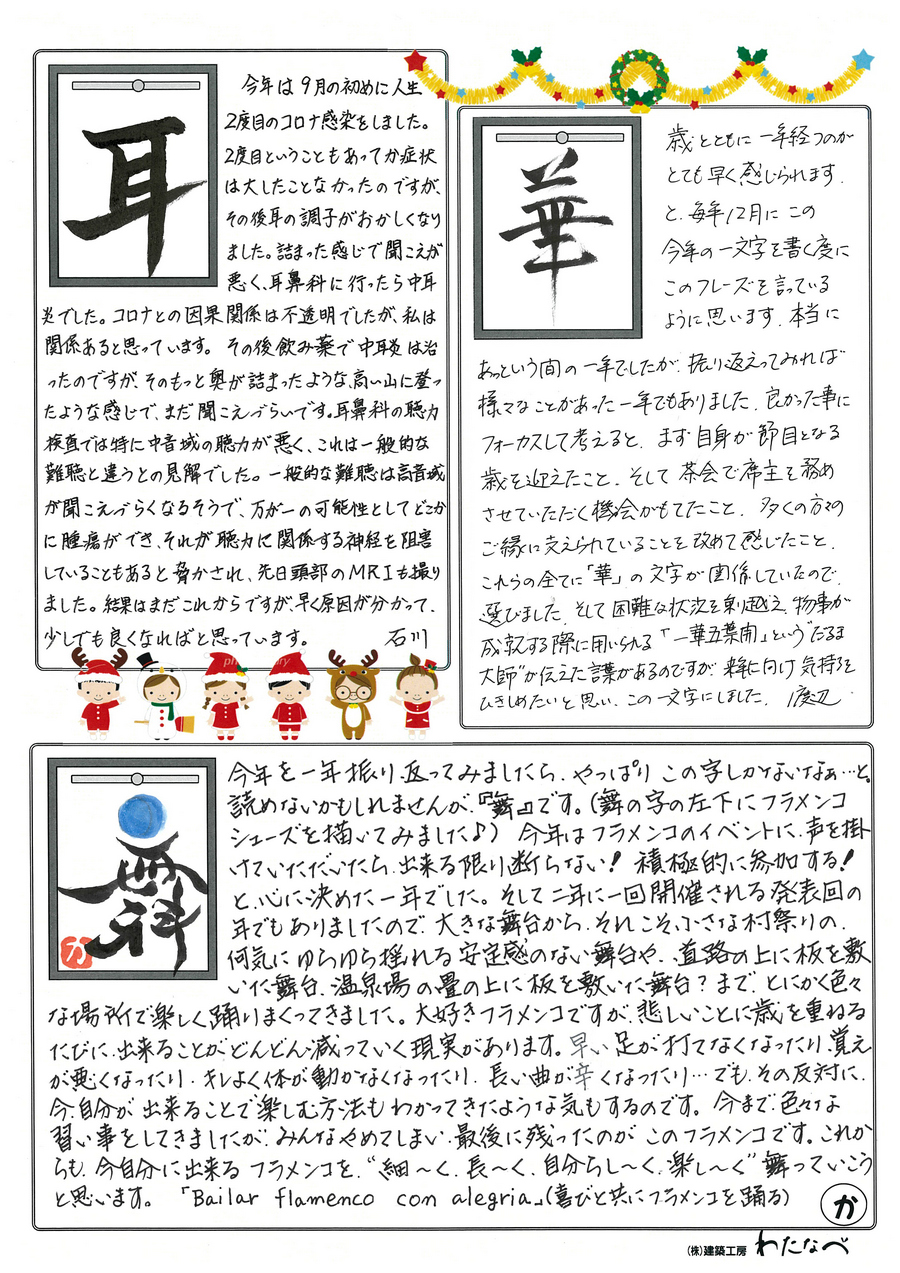 耳
今年は9月の初めに人生
2度目のコロナ感染をしました。
2度目ということもあってか症状
は大したことなかったのですが、
その後耳の調子がおかしくなり
ました。詰まった感じで聞こえが
悪く、耳鼻科に行ったら中耳
炎でした。コロナとの因果関係は不透明でしたが、私は
関係あると思っています。その後飲み薬で中耳炎は治
ったのですが、そのもっと奥が詰まったような、高い山に登っ
たような感じで、まだ聞こえづらいです。耳鼻科の聴力
検査では特に中音域の聴力が悪く、これは一般的な
難聴と違うとの見解でした。一般的な難聴は高音域
が聞こえづらくなるそうで、万が一の可能性としてどこか
に腫瘍ができ、それが聴力に関係する神経を阻害
していることもあると脅かされ、先日頭部のMRIも撮り
ました。結果はまだこれからですが、早く原因が分かって、
少しでも良くなればと思っています。 石川
華
歳とともに一年経つのが
とても早く感じられます.
と、毎年12月にこの
今年の一文字を書く度に
このフレーズを言っている
ように思います. 本当に
あっという間の一年でしたが、振り返えってみれば
様々なことがあった一年でもありました. 良かった事に
フォーカスして考えると、まず自身が節目となる
歳を迎えたこと、そして茶会で席主を務め
させていただく機会がもてたこと、多くの方々の
ご縁に支えられていることを改めて感じたこと、
これらの全てに「華」の文字が関係していたので、
選びました. そして困難な状況を乗り越え、物事が
成就する際に用いられる「一華五葉開」という"だるま
大師"が伝えた言葉があるのですが、来年に向け気持ちを
ひきしめたいと思い、この一文字にしました. 渡辺
舞
か
今年を一年振り返ってみましたら、やっぱりこの字しかないなぁ…と。
読めないかもしれませんが、『舞』です。(舞の字の左下にフラメンコ
シューズを描いてみました♪) 今年はフラメンコのイベントに、声を掛
けていただいたら、出来る限り断らない! 積極的に参加する!
と、心に決めた一年でした。そして二年に一回開催される発表回の
年でもありましたので、大きな舞台から、それこそ小さな村祭りの、
何気にゆらゆら揺れる安定感のない舞台や、道路の上に板を敷
いた舞台、温泉場の畳の上に板を敷いた舞台?まで、とにかく色々
な場所で楽しく踊りまくってきました。大好きフラメンコですが、悲しいことに歳を重ねる
たびに、出来ることがどんどん減っていく現実があります。早い足が打てなくなったり、覚え
が悪くなったり、キレよく体が動かなくなったり、長い曲が辛くなったり…でも、その反対に、
今、自分が出来ることで楽しむ方法もわかってきたような気もするのです。今まで色々な
習い事をしてきましたが、みんなやめてしまい、最後に残ったのがこのフラメンコです。これか
らも、今自分に出来るフラメンコを、"細〜く、長〜く、自分らし〜く、楽し〜く"舞っていこう
と思います。「Bailar flamenco con alegria」(喜びと共にフラメンコを踊る)
か
(株)建築工房 わたなべ